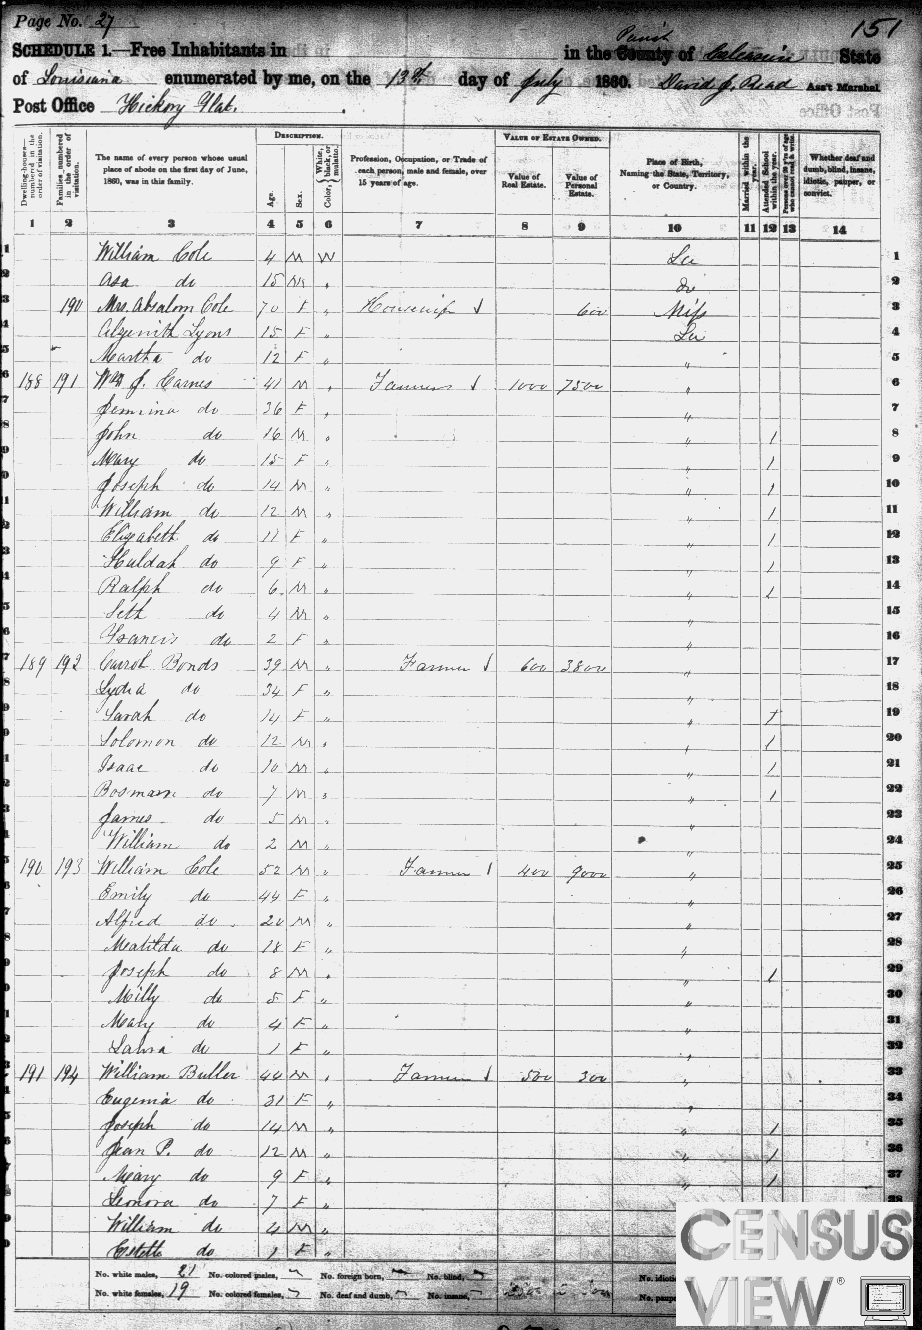 Page No. 27 151
SCHEDULE 1.—Free Inhabitants in in the County Parish of Calcasieu State
of Louisiana enumerated by me, on the 13th day of July 1860. David J. Read Ass't Marshal
Post Office Hickory Flat.
Dwelling-houses—numbered in the order of visitation.
Families numbered in the order of visitation.
The name of every person whose usual place of abode on the first day of June, 1860, was in this family.
DESCRIPTION.
Age.
Sex.
Color, White, black, or mulatto.
Profession, Occupation, or Trade of each person, male and female, over 15 years of age.
VALUE OF ESTATE OWNED.
Value of Real Estate.
Value of Personal Estate.
Place of Birth, Naming the State, Territory, or Country.
Married within the year.
Attended School within the year.
Persons over 20 y'rs of age who cannot read & write.
Whether deaf and dumb, blind, insane, idiotic, pauper, or convict.
1 2 3 4 5 6 7 8 9 10 11 12 13 14
1 William Cole 4 M W La 1
2 Asa do 15 M " do 2
3 190 Mrs. Absalom Cole 70 F " Housewife 600 Miss 3
4 Lyons 15 F " La 4
5 Martha do 12 F " " 5
6 188 191 Wm J. Carnes 41 M " Farmer 1000 7500 " 6
7 Jemima do 36 F " " 7
8 John do 16 M " " 1 8
9 Mary do 15 F " " 1 9
0 Joseph do 14 M " " 1 10
1 William do 12 M " " 1 11
2 Elizabeth do 11 F " " 1 12
3 Huldah do 9 F " " 1 13
4 Ralph do 6 M " " 1 14
5 Seth do 4 M " " 15
6 Francis do 2 F " " 16
7 189 192 Bonds 39 M " Farmer 600 3800 " 17
8 Lydia do 34 F " " 18
9 Sarah do 14 F " " 1 19
0 Solomon do 12 M " " 1 20
1 Isaac do 10 M " " 1 21
2 do 7 M " " 1 22
3 James do 5 M " " 23
4 William do 2 M " " 24
5 190 193 William Cole 52 M " Farmer 400 9000 " 25
6 Emily do 44 F " " 26
7 Alfred do 20 M " " 27
8 Matilda do 18 F " " 28
9 Joseph do 8 M " " 1 29
0 Milly do 5 F " " 30
1 Mary do 4 F " " 31
2 Laura do 1 F " " 32
3 191 194 William Buller 44 M " Farmer 500 300 " 33
4 Eugenia do 31 F " " 34
5 Joseph do 14 M " " 1 35
6 Jean P. do 12 M " " 1 36
7 Mary do 9 F " " 1 37
8 Leonora do 7 F " 38
9 William do 4 M "
0 Estelle do 1 F "
No. white males, 21 No. colored males, No. foreign born, No. blind, No. idiotic
No. white females, 19 No. colored females, No. deaf and dumb, No. insane, No. paupe
CENSUS
VIEW®